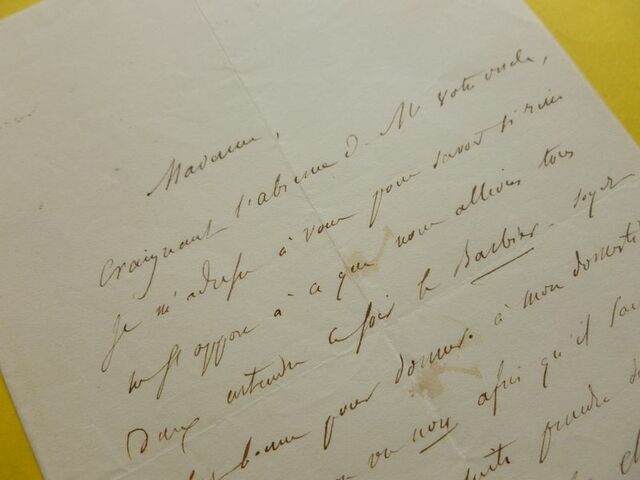 Madame,
Craignant l'absence d. M votre oncle,
je m'adresse à vous pour savoir si rien
ne s'oppose à ce que nous allions tous
deux entendre ce soir le Barbier. Soyez
bonne pour donner à mon domesti
ou non afin qu'il
prendre